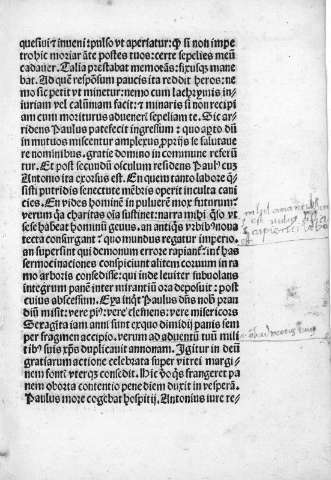 quesiui ⁊ inueni: pulso vt aperiatur: ꝙ si non impe
tro hic moriar ãte postes tuos: certe sepelies meũ
cadauer. Talia prestabat memorãs: fixusqꝫ mane
bat. Ad quẽ respõsum paucis ita reddit heros: ne⸗
mo sic petit vt minetur: nemo cum lachrymis in⸗
iuriam vel calũniam facit: ⁊ minaris si non recipi
am cum moriturus adueneris sepeliam te. Sic ar⸗
ridens Paulus patefecit ingressum: quo apto dũ
in mutuos miscentur amplexus, pprijs se salutaue
re nominibus. gratie domino in commune referũ
tur. Et post secundũ osculum residens Paulus cuʒ
Antonio ita exorsus est. En quem tanto labore q̃⸗
sisti putridis senectute mẽbris operit inculta cani
cies. En vides hominẽ in puluerẽ mox futurum.
verum q̃a charitas oĩa sustinet: narra mihi q̃so vt
sese habeat hominũ genus. an antiq̃s vrbibus noua
tecta consurgant: quo mundus regatur imperio.
an supersint qui demonum errore rapiant᷑. int̃ has
sermocinationes conspiciunt alitem coruum in ra
mo arboris consedisse: qui inde leuiter subuolans
integrum panẽ inter mirantiũ ora deposuit: post
cuius abscessum. Eya inqͥt Paulus dñs nobis pran
diũ misit: vere pius: vere clemẽs: vere misericors
Sexaginta iam anni sunt exquo dimidij panis sem
per fragmen accipio. verum ad aduentũ tuũ mili
tibus suis xp̃s duplicauit annonam. Igitur in deũ
gratiarum actione celebrata super vitrei margi⸗
nem fontis vterqꝫ consedit. Hic vero quis frangeret pa
nem oborta contentio pene diem duxit in vesperã.
Paulus more cogebat hospitij. Antonius iure re⸗